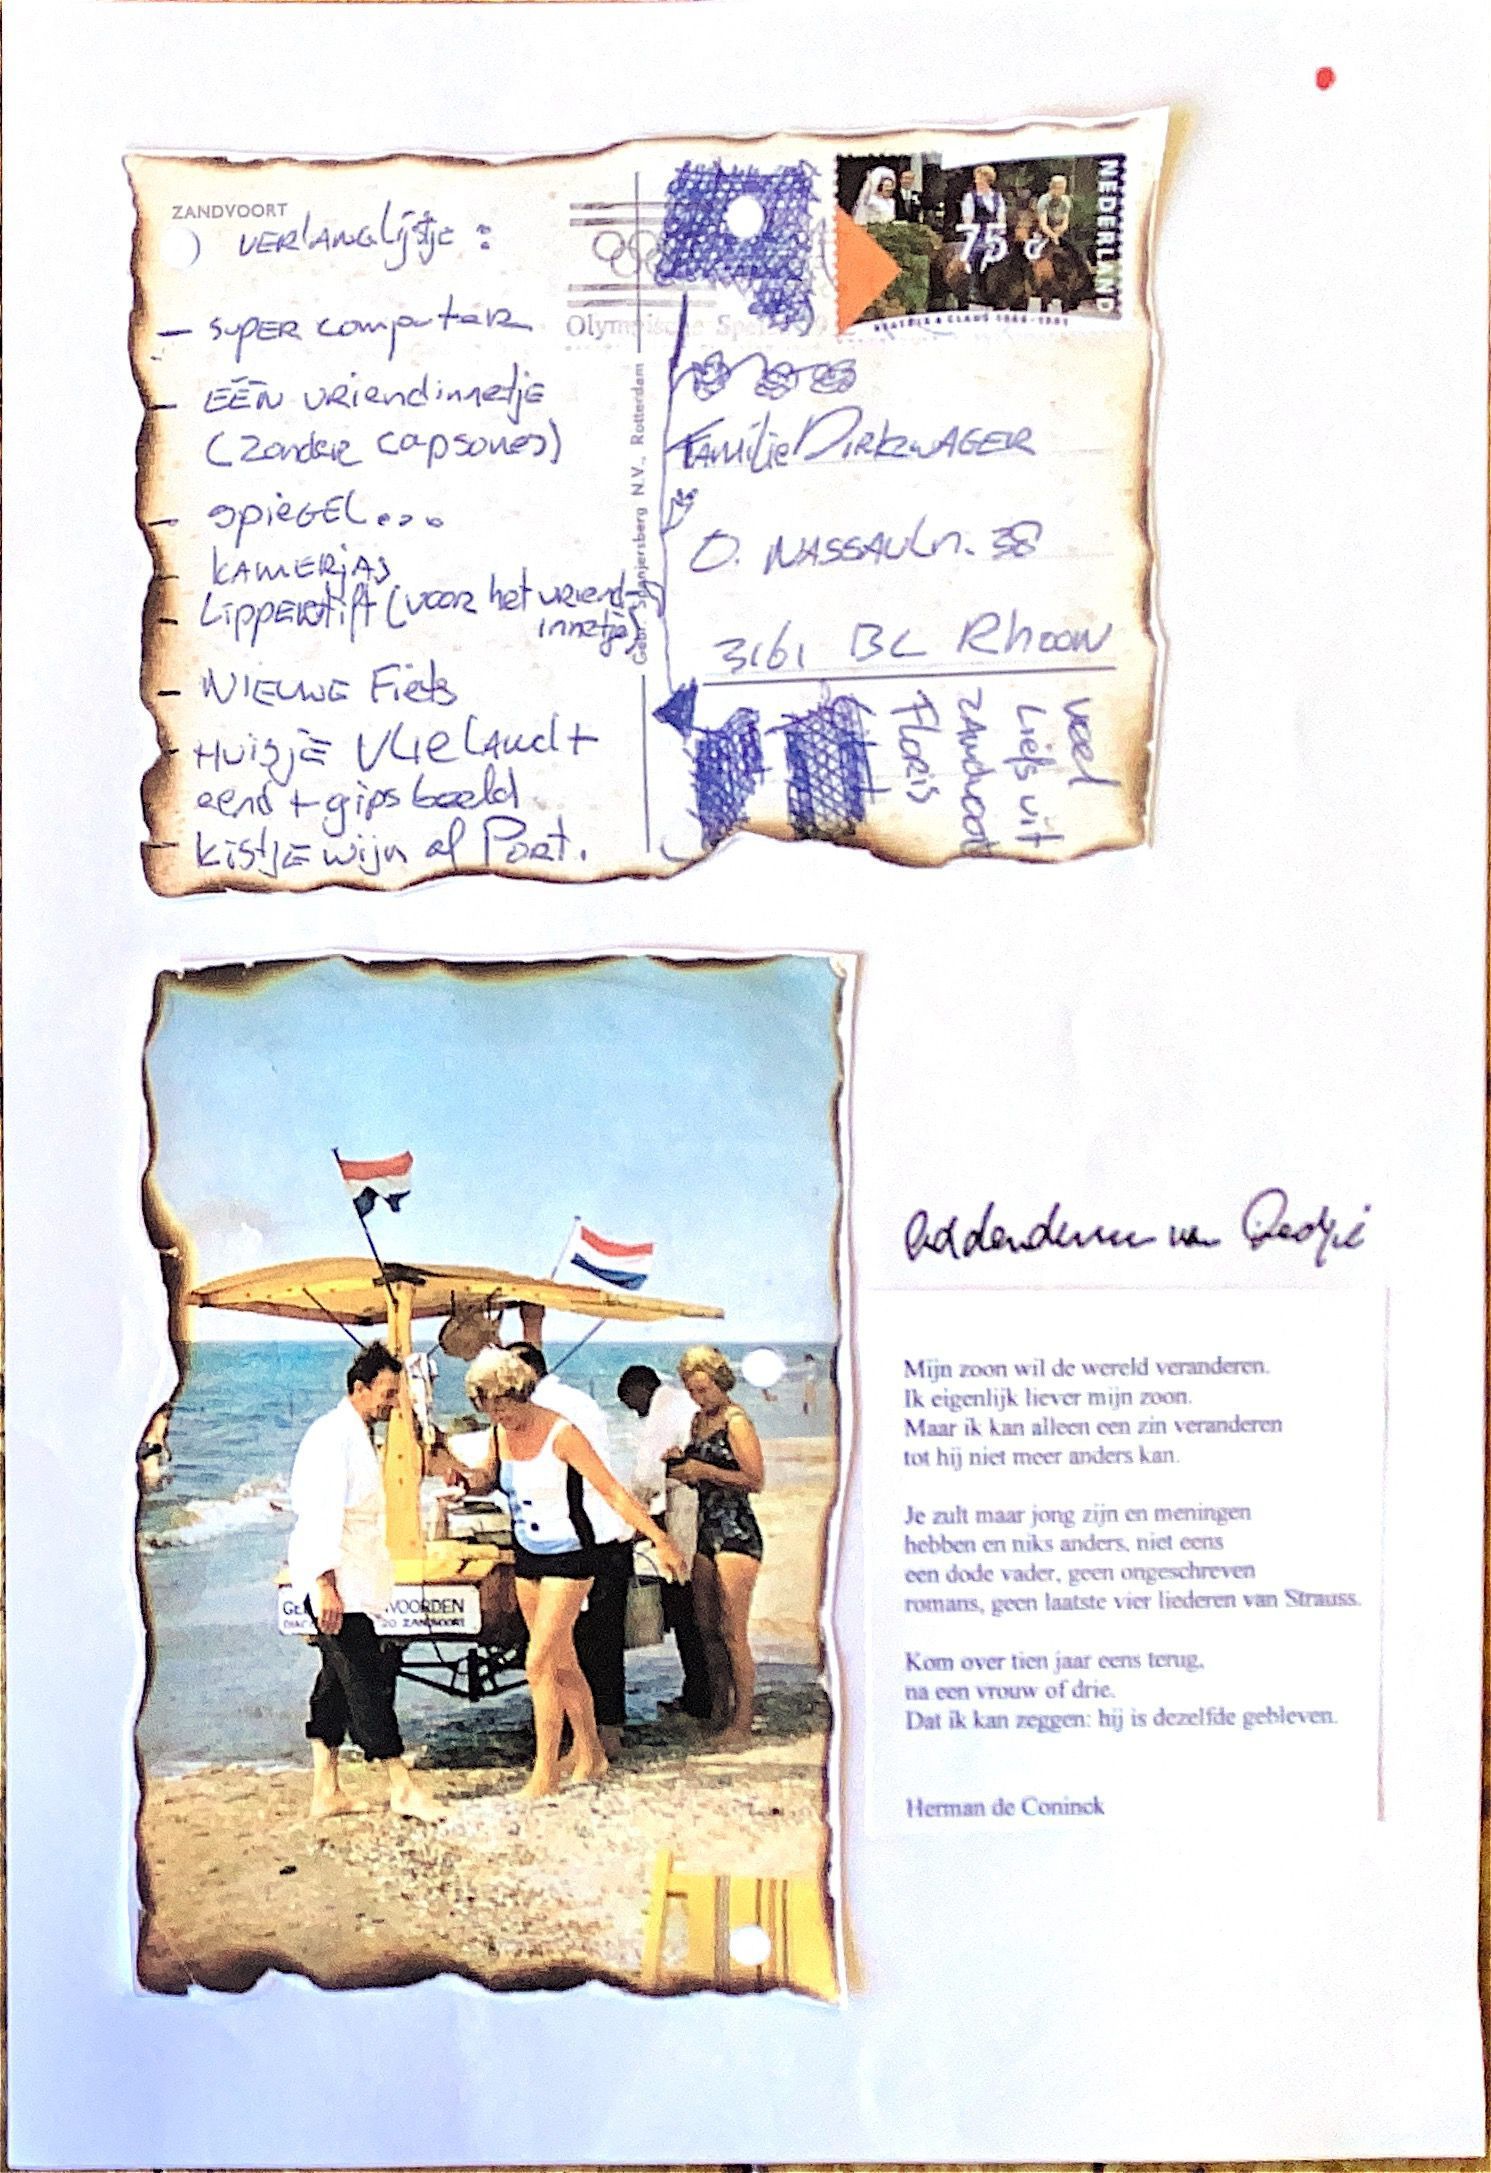 ZANDVOORT
VERLANGLIJSTJE :
– SUPER COMPUTER
– EÉN VRIENDINNETJE
(ZONDER CAPSONES)
– SPIEGEL...
– KAMERJAS
– LIPPENSTIFT (VOOR HET VRIEND-
INNETJE)
– NIEUWE FIETS
– HUISJE VLIELAND +
eend + gipsbeeld
– KISTJE WIJN of PORT.
Olympische Spelen
Gebr. Spanjersberg N.V., Rotterdam
NEDERLAND
75 c
BEATRIX & CLAUS 1966-1991
FAMILIE DIRKZWAGER
O. NASSAULn. 38
3161 BL RHOON
VEEL
LIEFS UIT
ZANDVOORT
FLORIS
VOORDEN
ZANDVOORT
Addendum van
Mijn zoon wil de wereld veranderen.
Ik eigenlijk liever mijn zoon.
Maar ik kan alleen een zin veranderen
tot hij niet meer anders kan.
Je zult maar jong zijn en meningen
hebben en niks anders, niet eens
een dode vader, geen ongeschreven
romans, geen laatste vier liederen van Strauss.
Kom over tien jaar eens terug,
na een vrouw of drie.
Dat ik kan zeggen: hij is dezelfde gebleven.
Herman de Coninck